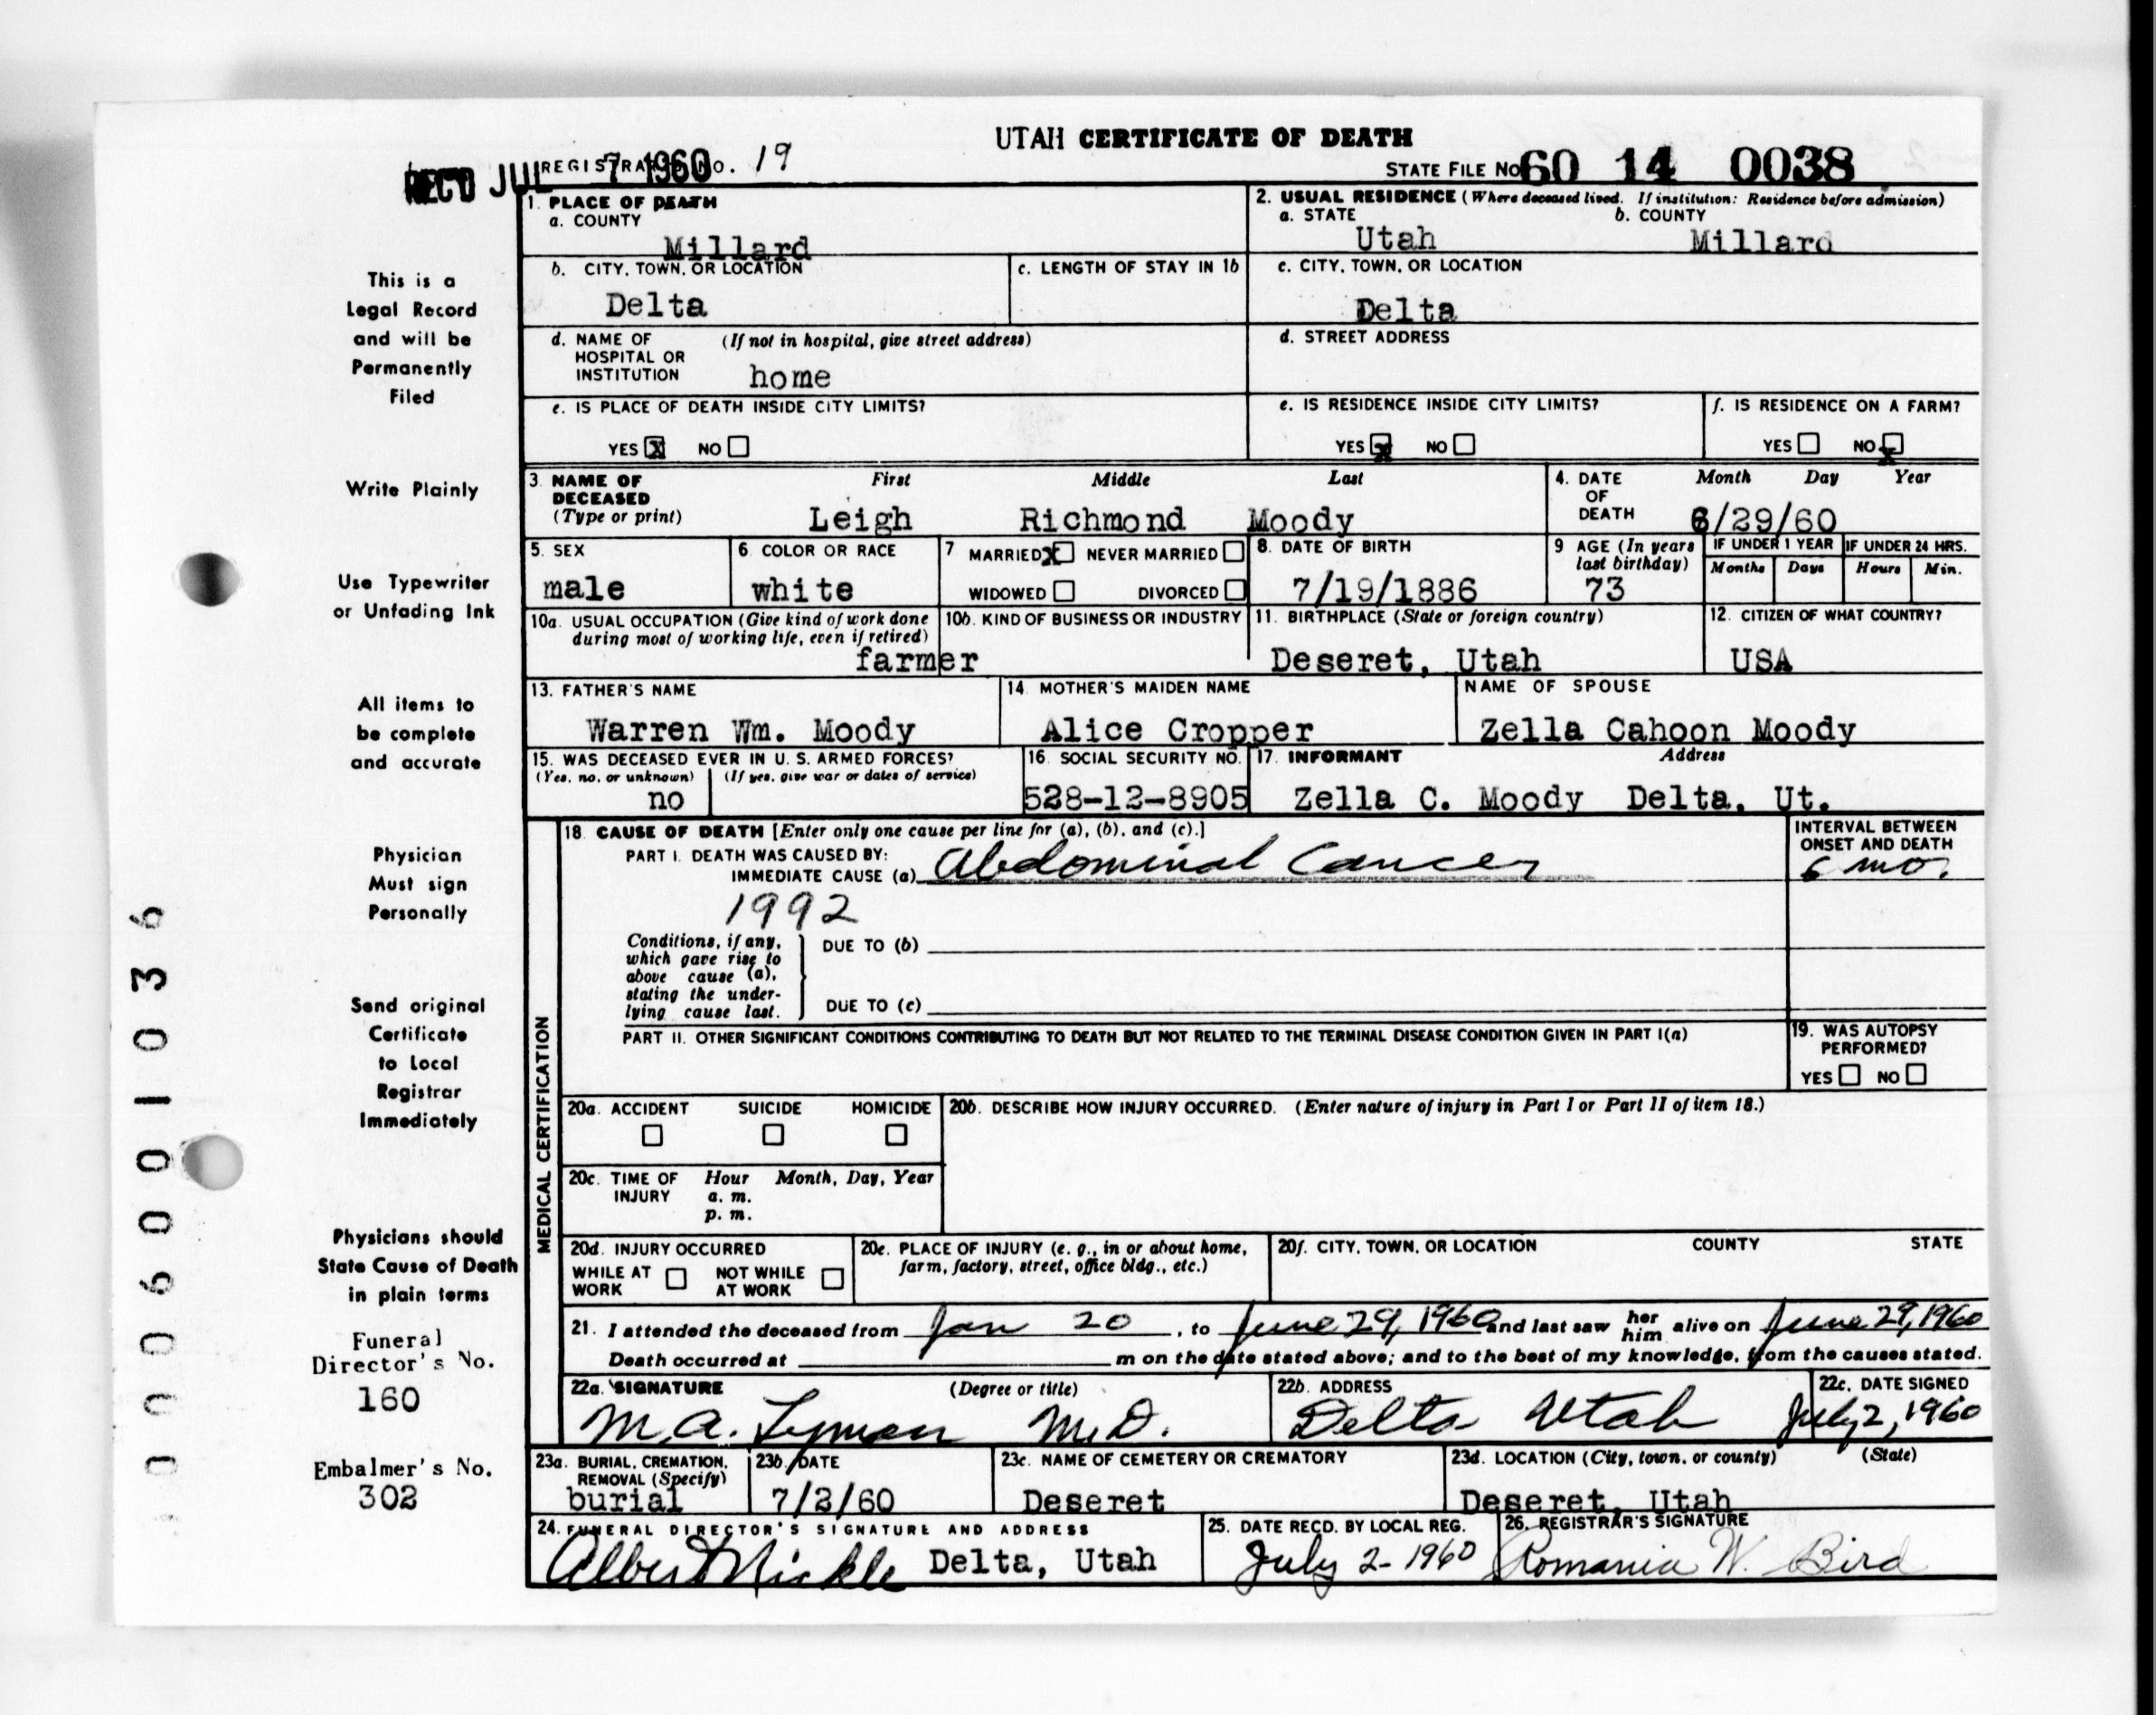 UTAH CERTIFICATE OF DEATH
REC'D JUL 7 1960
REGISTRAR'S NO. 19
STATE FILE NO. 60 14 0038
1. PLACE OF DEATH
a. COUNTY
Millard
2. USUAL RESIDENCE (Where deceased lived. If institution: Residence before admission)
a. STATE b. COUNTY
Utah Millard
b. CITY, TOWN, OR LOCATION
Delta
c. LENGTH OF STAY IN 1b
c. CITY, TOWN, OR LOCATION
Delta
d. NAME OF (If not in hospital, give street address)
HOSPITAL OR
INSTITUTION home
d. STREET ADDRESS
e. IS PLACE OF DEATH INSIDE CITY LIMITS?
YES X NO
e. IS RESIDENCE INSIDE CITY LIMITS?
YES X NO
f. IS RESIDENCE ON A FARM?
YES NO X
3. NAME OF First Middle Last
DECEASED
(Type or print) Leigh Richmond Moody
4. DATE Month Day Year
OF
DEATH 6/29/60
5. SEX
male
6. COLOR OR RACE
white
7 MARRIED X NEVER MARRIED
WIDOWED DIVORCED
8. DATE OF BIRTH
7/19/1886
9 AGE (In years
last birthday)
73
IF UNDER 1 YEAR IF UNDER 24 HRS.
Months Days Hours Min.
10a. USUAL OCCUPATION (Give kind of work done
during most of working life, even if retired)
farmer
10b. KIND OF BUSINESS OR INDUSTRY
11. BIRTHPLACE (State or foreign country)
Deseret, Utah
12. CITIZEN OF WHAT COUNTRY?
USA
13. FATHER'S NAME
Warren Wm. Moody
14. MOTHER'S MAIDEN NAME
Alice Cropper
NAME OF SPOUSE
Zella Cahoon Moody
15. WAS DECEASED EVER IN U. S. ARMED FORCES?
(Yes, no, or unknown) (If yes, give war or dates of service)
no
16. SOCIAL SECURITY NO.
528-12-8905
17. INFORMANT Address
Zella C. Moody Delta, Ut.
MEDICAL CERTIFICATION
18. CAUSE OF DEATH [Enter only one cause per line for (a), (b), and (c).]
PART I. DEATH WAS CAUSED BY:
IMMEDIATE CAUSE (a) Abdominal Cancer
1992
INTERVAL BETWEEN
ONSET AND DEATH
6 mo.
Conditions, if any,
which gave rise to
above cause (a),
stating the under-
lying cause last.
DUE TO (b)
DUE TO (c)
PART II. OTHER SIGNIFICANT CONDITIONS CONTRIBUTING TO DEATH BUT NOT RELATED TO THE TERMINAL DISEASE CONDITION GIVEN IN PART I(a)
19. WAS AUTOPSY
PERFORMED?
YES NO
20a. ACCIDENT SUICIDE HOMICIDE
20b. DESCRIBE HOW INJURY OCCURRED. (Enter nature of injury in Part I or Part II of item 18.)
20c. TIME OF Hour Month, Day, Year
INJURY a. m.
p. m.
20d. INJURY OCCURRED
WHILE AT NOT WHILE
WORK AT WORK
20e. PLACE OF INJURY (e. g., in or about home,
farm, factory, street, office bldg., etc.)
20f. CITY, TOWN, OR LOCATION COUNTY STATE
21. I attended the deceased from Jan 20, to June 29, 1960 and last saw her him alive on June 29, 1960
Death occurred at m on the date stated above; and to the best of my knowledge, from the causes stated.
22a. SIGNATURE (Degree or title)
M. A. Lyman M.D.
22b. ADDRESS
Delta Utah
22c. DATE SIGNED
July 2, 1960
23a. BURIAL, CREMATION,
REMOVAL (Specify)
burial
23b. DATE
7/2/60
23c. NAME OF CEMETERY OR CREMATORY
Deseret
23d. LOCATION (City, town, or county) (State)
Deseret, Utah
24. FUNERAL DIRECTOR'S SIGNATURE AND ADDRESS
Albert Nickle Delta, Utah
25. DATE RECD. BY LOCAL REG.
July 2-1960
26. REGISTRAR'S SIGNATURE
Romania W. Bird
This is a
Legal Record
and will be
Permanently
Filed
Write Plainly
Use Typewriter
or Unfading Ink
All items to
be complete
and accurate
Physician
Must sign
Personally
Send original
Certificate
to Local
Registrar
Immediately
Physicians should
State Cause of Death
in plain terms
Funeral
Director's No.
160
Embalmer's No.
302
0006001036